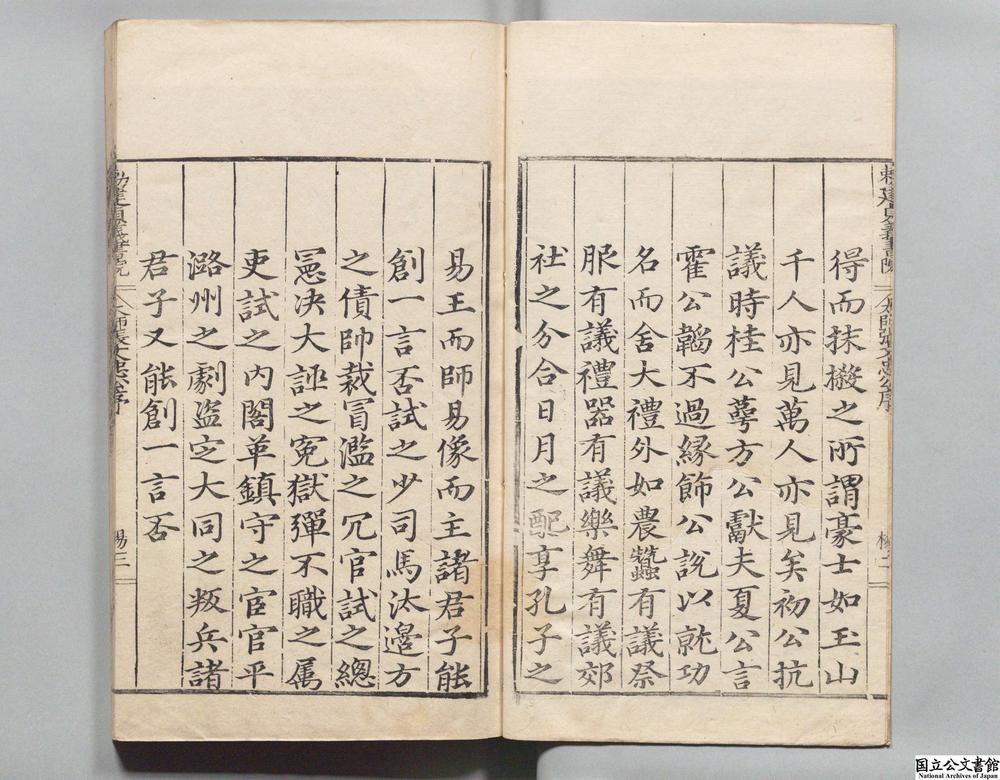 得而抹摋之所謂豪士如玉山
千人亦見萬人亦見矣初公抗
議時桂公萼方公獻夫夏公言
霍公韜不過緣飾公說以就功
名而舍大禮外如農蠶有議祭
服有議禮器有議樂舞有議郊
社之分合日月之配享孔子之
易王而師易像而主諸君子能
創一言否試之少司馬汰邊方
之債帥裁冒濫之冗官試之總
憲决大誣之冤獄彈不職之属
吏試之內閣革鎮守之宦官平
潞州之劇盜定大同之叛兵諸
君子又能創一言否
太師張文忠公序
楊二
国立公文書館
National Archives of Japan